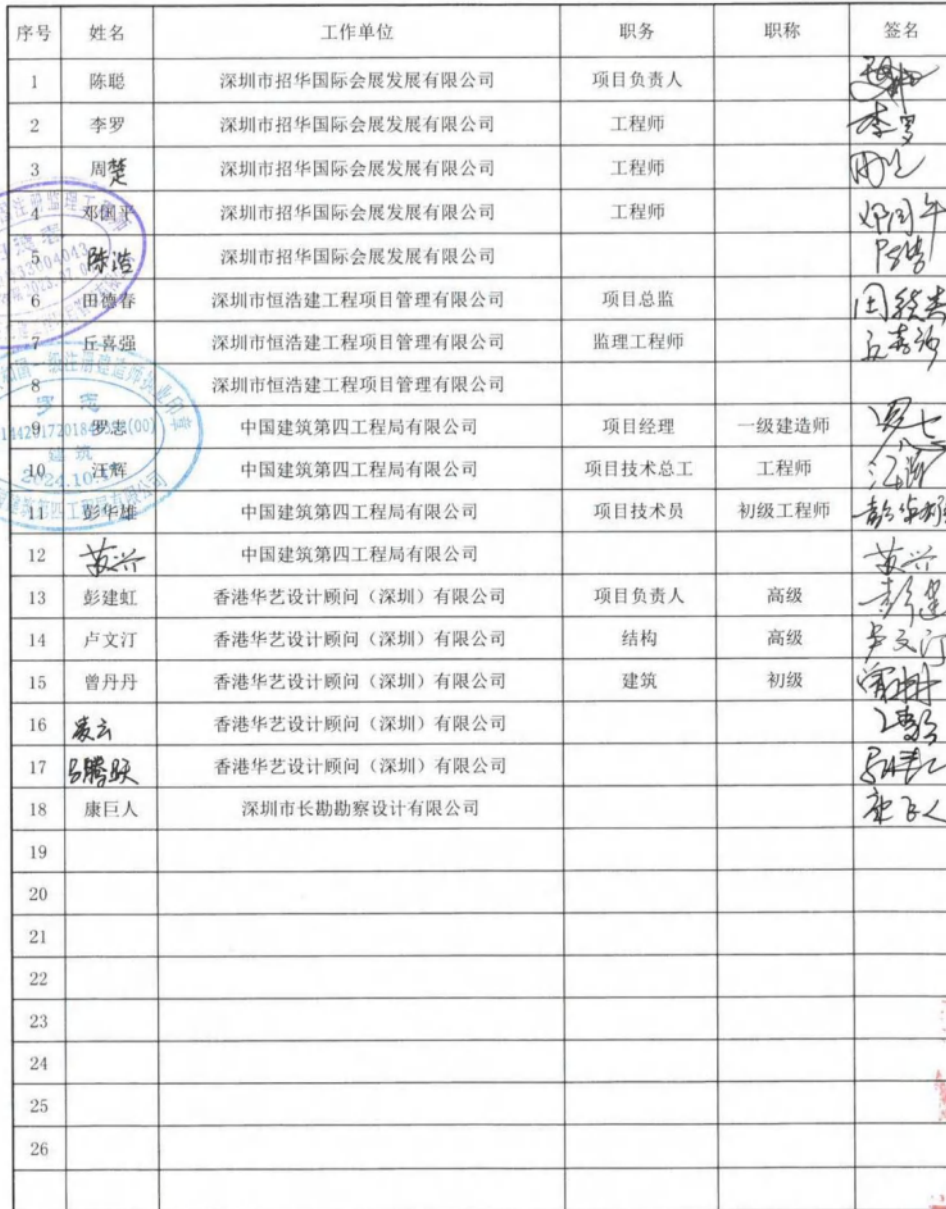 序号 姓名 工作单位 职务 职称 签名
1 陈聪 深圳市招华国际会展发展有限公司 项目负责人
2 李罗 深圳市招华国际会展发展有限公司 工程师 李罗
3 周楚 深圳市招华国际会展发展有限公司 工程师
4 邓国平 深圳市招华国际会展发展有限公司 工程师 邓国平
5 陈浩 深圳市招华国际会展发展有限公司 陈浩
6 田德春 深圳市恒浩建工程项目管理有限公司 项目总监 田德春
7 丘喜强 深圳市恒浩建工程项目管理有限公司 监理工程师 丘喜强
8 深圳市恒浩建工程项目管理有限公司
9 罗志 中国建筑第四工程局有限公司 项目经理 一级建造师 罗志
10 汪辉 中国建筑第四工程局有限公司 项目技术总工 工程师 汪辉
11 彭华雄 中国建筑第四工程局有限公司 项目技术员 初级工程师 彭华雄
12 黄兴 中国建筑第四工程局有限公司 黄兴
13 彭建虹 香港华艺设计顾问（深圳）有限公司 项目负责人 高级
14 卢文汀 香港华艺设计顾问（深圳）有限公司 结构 高级 卢文汀
15 曾丹丹 香港华艺设计顾问（深圳）有限公司 建筑 初级 曾丹丹
16 凌云 香港华艺设计顾问（深圳）有限公司
17 吕腾跃 香港华艺设计顾问（深圳）有限公司
18 康巨人 深圳市长勘勘察设计有限公司 康巨人
19
20
21
22
23
24
25
26